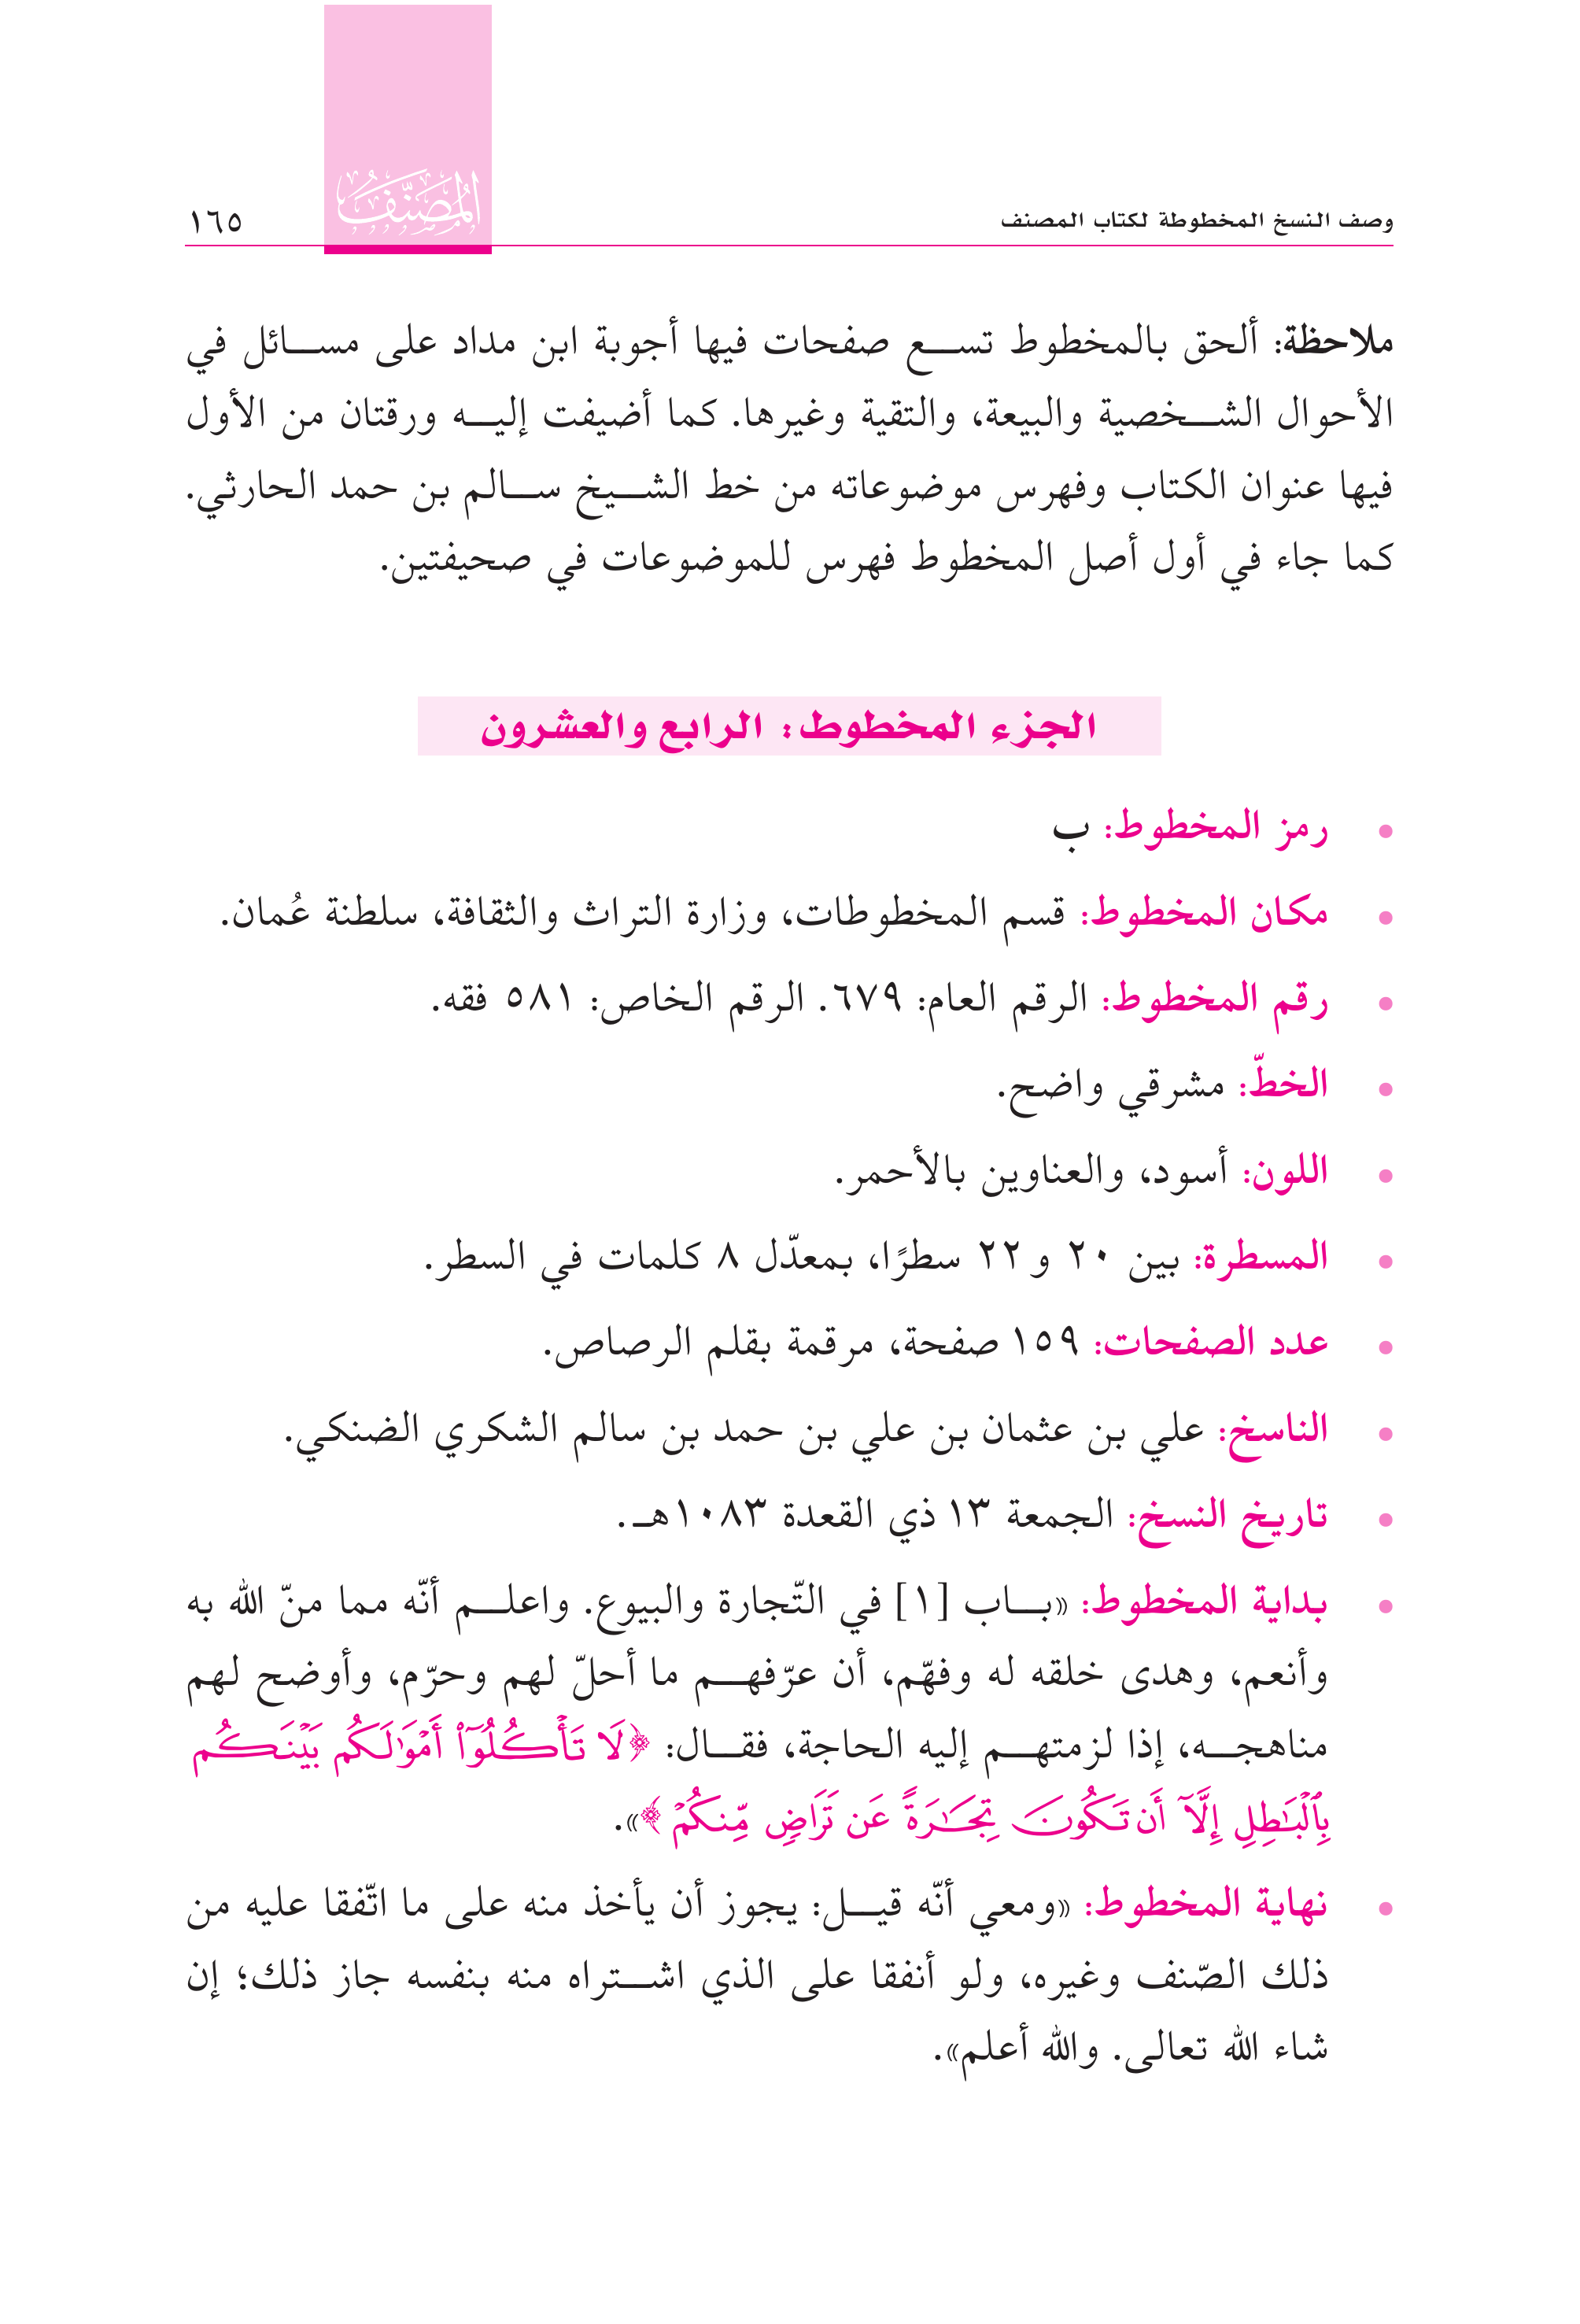 وصف النسخ المخطوطة لكتاب المصنف
المُصَنَّفُ
١٦٥
ملاحظة: ألحق بالمخطوط تسع صفحات فيها أجوبة ابن مداد على مسائل في
الأحوال الشخصية والبيعة، والتقية وغيرها. كما أضيفت إليه ورقتان من الأول
فيها عنوان الكتاب وفهرس موضوعاته من خط الشيخ سالم بن حمد الحارثي.
كما جاء في أول أصل المخطوط فهرس للموضوعات في صحيفتين.
الجزء المخطوط: الرابع والعشرون
• رمز المخطوط: ب
• مكان المخطوط: قسم المخطوطات، وزارة التراث والثقافة، سلطنة عُمان.
• رقم المخطوط: الرقم العام: ٦٧٩. الرقم الخاص: ٥٨١ فقه.
• الخطّ: مشرقي واضح.
• اللون: أسود، والعناوين بالأحمر.
• المسطرة: بين ٢٠ و٢٢ سطرًا، بمعدّل ٨ كلمات في السطر.
• عدد الصفحات: ١٥٩ صفحة، مرقمة بقلم الرصاص.
• الناسخ: علي بن عثمان بن علي بن حمد بن سالم الشكري الضنكي.
• تاريخ النسخ: الجمعة ١٣ ذي القعدة ١٠٨٣هـ.
• بداية المخطوط: «باب [١] في التّجارة والبيوع. واعلم أنّه مما منّ الله به
وأنعم، وهدى خلقه له وفهّم، أن عرّفهم ما أحلّ لهم وحرّم، وأوضح لهم
مناهجه، إذا لزمتهم إليه الحاجة، فقال: ﴿لَا تَأْكُلُوٓاْ أَمْوَٰلَكُم بَيْنَكُم
بِٱلْبَٰطِلِ إِلَّآ أَن تَكُونَ تِجَٰرَةً عَن تَرَاضٍ مِّنكُمْ﴾».
• نهاية المخطوط: «ومعي أنّه قيل: يجوز أن يأخذ منه على ما اتّفقا عليه من
ذلك الصّنف وغيره، ولو أنفقا على الذي اشتراه منه بنفسه جاز ذلك؛ إن
شاء الله تعالى. والله أعلم».